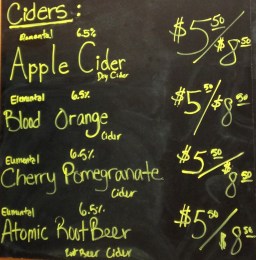 Ciders:
Elemental 6.5% $5.50/$8.50
Apple Cider
Dry Cider
Elemental 6.5% $5.50/$8.50
Blood Orange
Cider
Elemental 6.5% $5.50/$8.50
Cherry Pomegranate
Cider
Elemental 6.5% $5.50/$8.50
Atomic Root Beer
Root Beer Cider